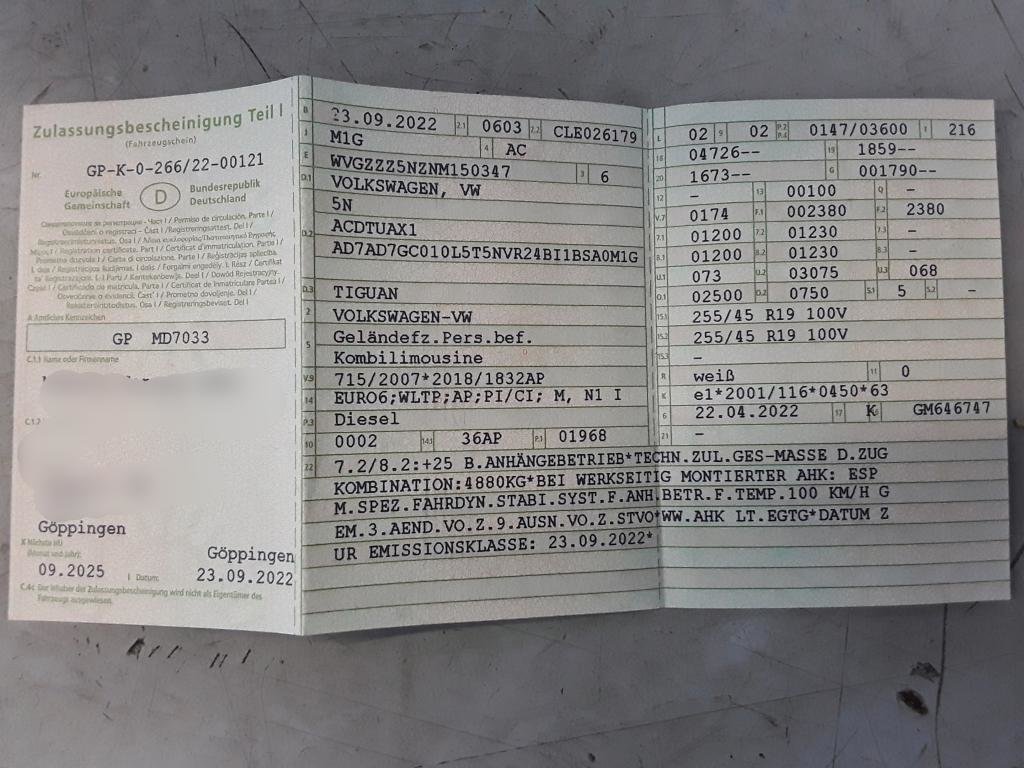 Zulassungsbescheinigung Teil I
(Fahrzeugschein)
Nr. GP-K-0-266/22-00121
Europäische Gemeinschaft D Bundesrepublik Deutschland
A Amtliches Kennzeichen
GP MD7033
C.1.1 Name oder Firmenname
C.1.2
Göppingen
X Nächste HU
(Monat und Jahr):
09.2025
Göppingen
I Datum: 23.09.2022
C.4c Der Inhaber der Zulassungsbescheinigung wird nicht als Eigentümer des
Fahrzeugs ausgewiesen.
B 23.09.2022 2.1 0603 2.2 CLE026179
J M1G 4 AC
E WVGZZZ5NZNM150347 3 6
D.1 VOLKSWAGEN, VW
5N
D.2 ACDTUAX1
AD7AD7GC010L5T5NVR24BI1BSA0M1G
D.3 TIGUAN
2 VOLKSWAGEN-VW
5 Geländefz.Pers.bef.
Kombilimousine
V.9 715/2007*2018/1832AP
14 EURO6;WLTP;AP;PI/CI; M, N1 I
P.3 Diesel
10 0002 14.1 36AP P.1 01968
22 7.2/8.2:+25 B.ANHÄNGEBETRIEB*TECHN.ZUL.GES-MASSE D.ZUG
KOMBINATION:4880KG*BEI WERKSEITIG MONTIERTER AHK: ESP
M.SPEZ.FAHRDYN.STABI.SYST.F.ANH.BETR.F.TEMP.100 KM/H G
EM.3.AEND.VO.Z.9.AUSN.VO.Z.STVO*WW.AHK LT.EGTG*DATUM Z
UR EMISSIONSKLASSE: 23.09.2022*
L 02 9 02 P.2 P.4 0147/03600 T 216
18 04726-- 19 1859--
20 1673-- G 001790--
12 - 13 00100 Q -
V.7 0174 F.1 002380 F.2 2380
7.1 01200 7.2 01230 7.3 -
8.1 01200 8.2 01230 8.3 -
U.1 073 U.2 03075 U.3 068
O.1 02500 O.2 0750 S.1 5 S.2 -
15.1 255/45 R19 100V
15.2 255/45 R19 100V
15.3 -
R weiß 11 0
K e1*2001/116*0450*63
6 22.04.2022 17 K 16 GM646747
21 -